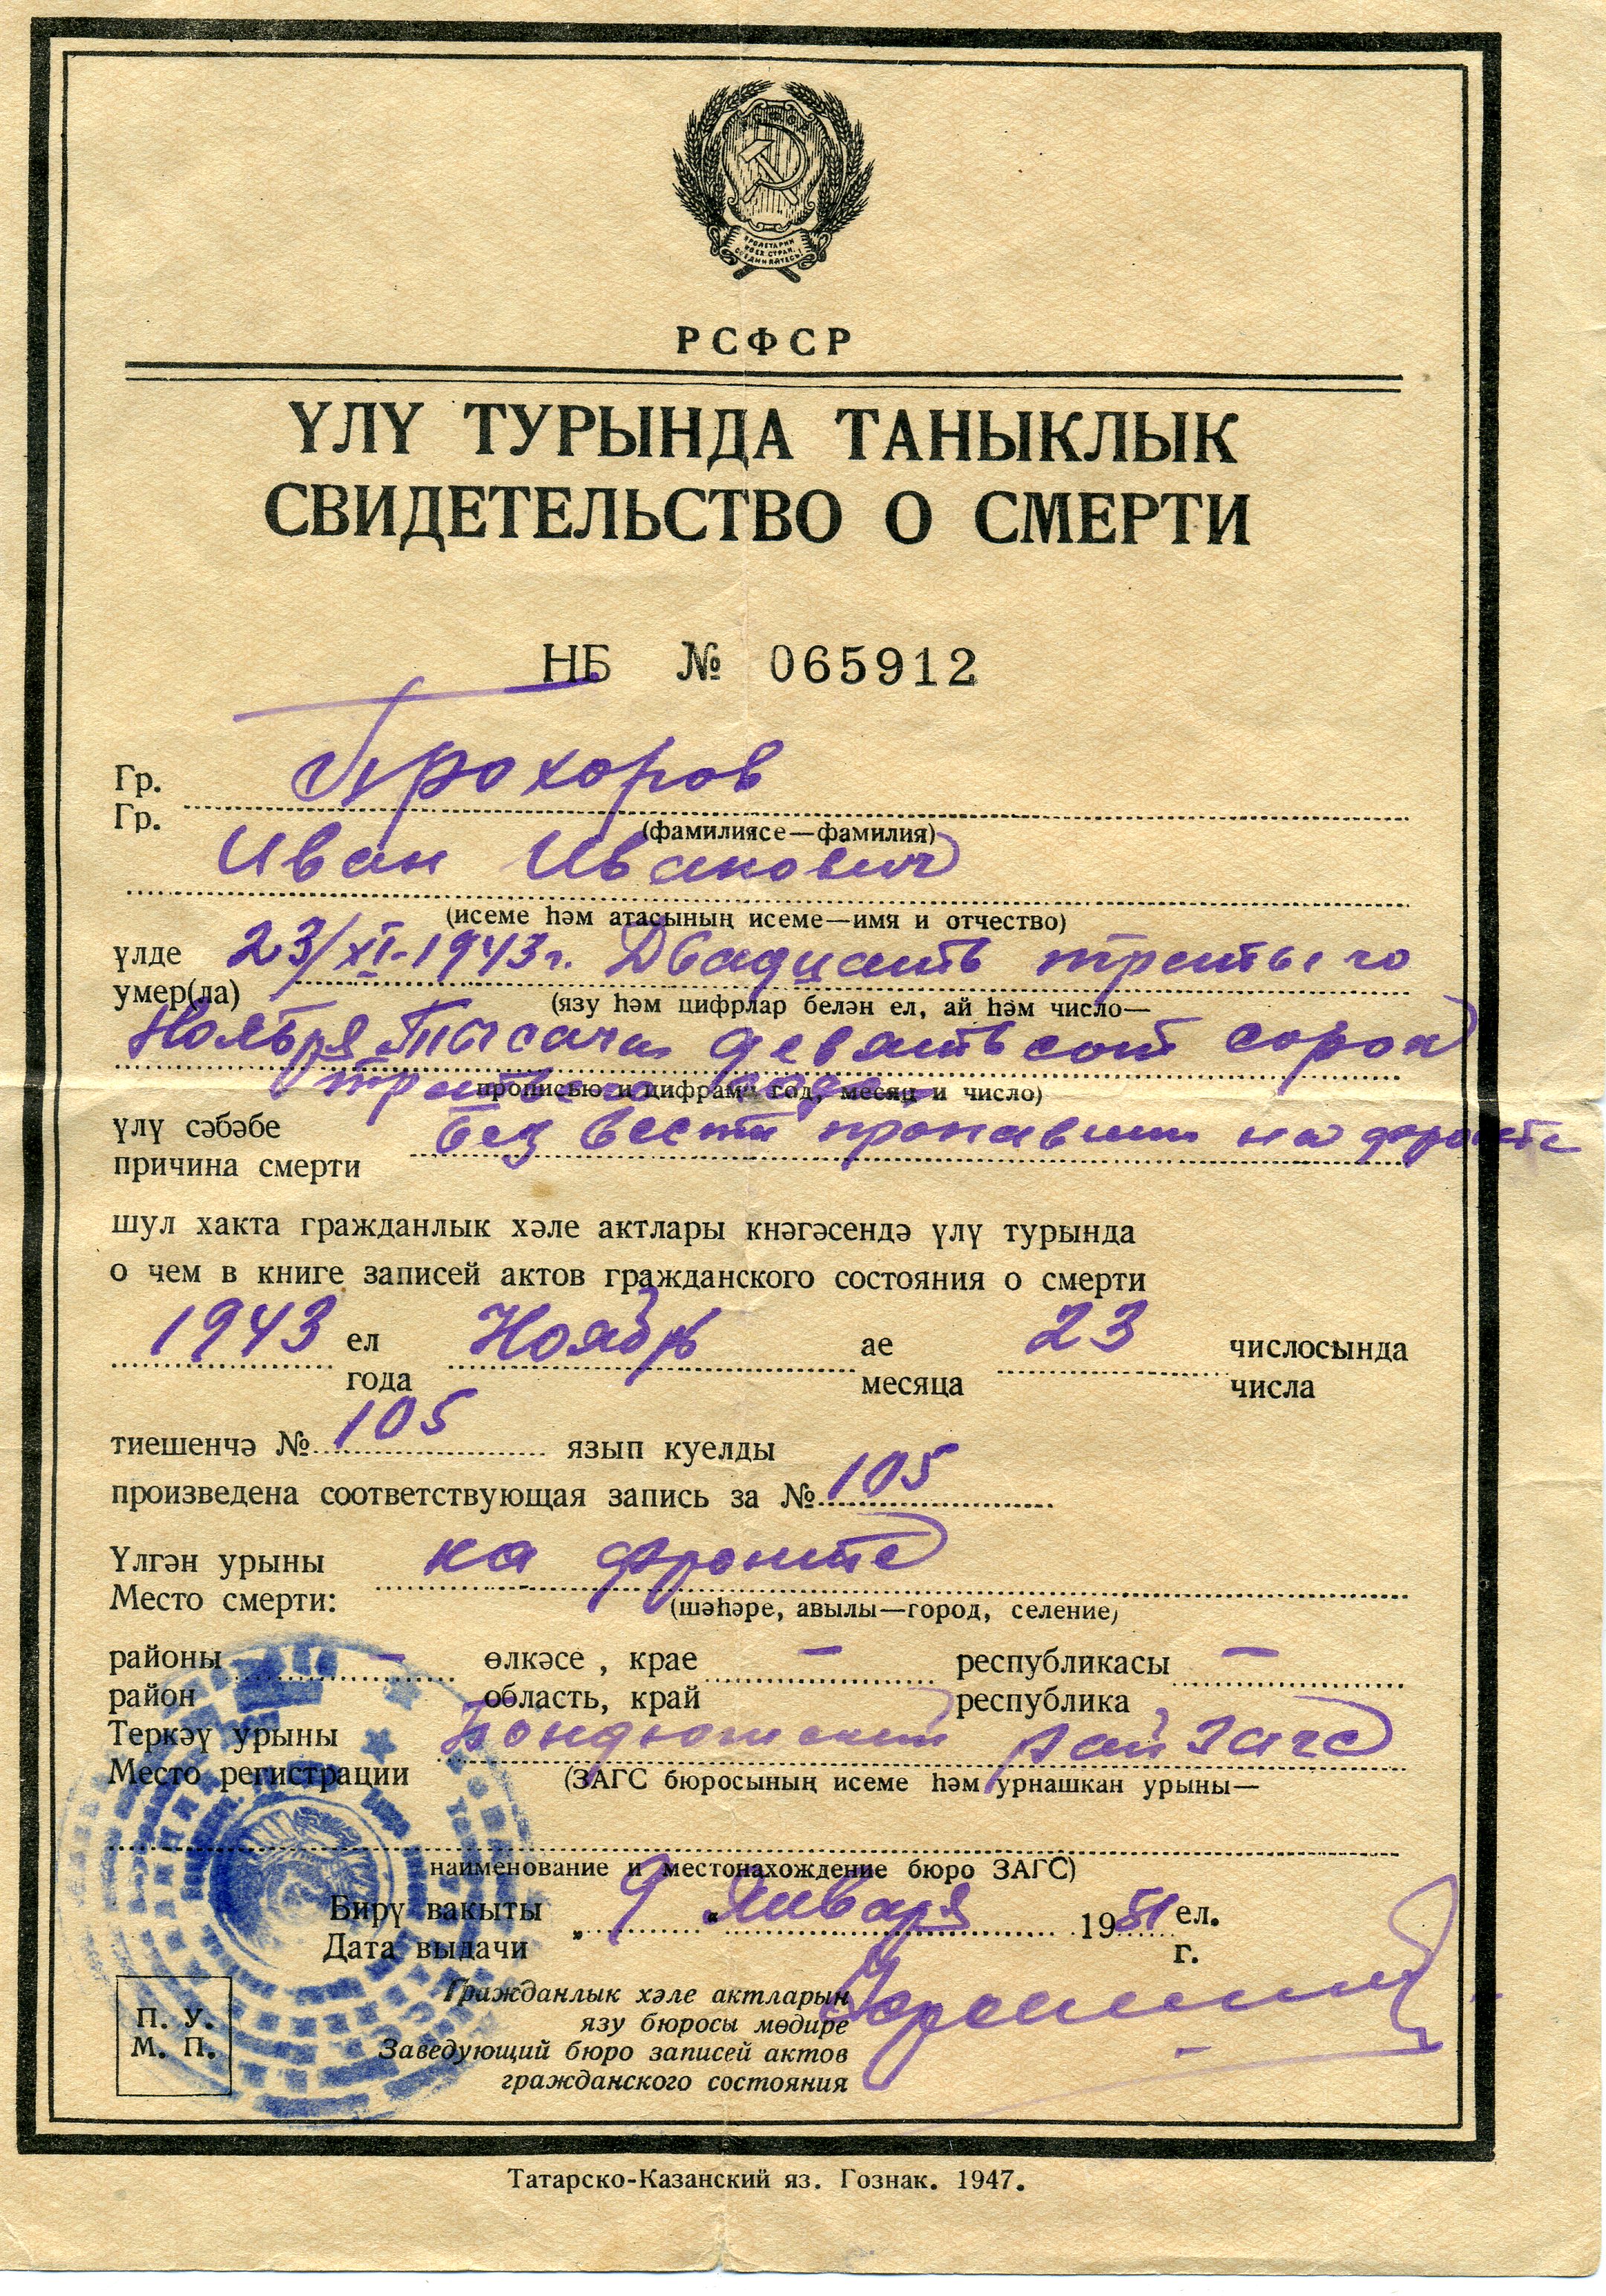 ПРОЛЕТАРИИ
ВСЕХ СТРАН,
СОЕДИНЯЙТЕСЬ!
РСФСР
ҮЛҮ ТУРЫНДА ТАНЫКЛЫК
СВИДЕТЕЛЬСТВО О СМЕРТИ
НБ № 065912
Гр. Прохоров
Гр.
(фамилиясе—фамилия)
Иван Иванович
(исеме һәм атасының исеме—имя и отчество)
үлде 23/XI-1943 г. Двадцать третьего
умер(ла)
(язу һәм цифрлар белән ел, ай һәм число—
Ноября Тысяча девятьсот сорок
третьего года
прописью и цифрами год, месяц и число)
үлү сәбәбе Без вести пропавший на фронте
причина смерти
шул хакта гражданлык хәле актлары кнәгәсендә үлү турында
о чем в книге записей актов гражданского состояния о смерти
1943 ел Ноябрь ае 23 числосында
года месяца числа
тиешенчә № 105 язып куелды
произведена соответствующая запись за № 105
Үлгән урыны на фронте
Место смерти:
(шәһәре, авылы—город, селение)
районы — өлкәсе, крае — республикасы —
район область, край республика
Теркәү урыны Бондюжский райзагс
Место регистрации
(ЗАГС бюросының исеме һәм урнашкан урыны—
наименование и местонахождение бюро ЗАГС)
Бирү вакыты „ 9 “ Января 1951 ел.
Дата выдачи г.
Гражданлык хәле актларын
язу бюросы мөдире
Заведующий бюро записей актов
гражданского состояния
П. У.
М. П.
Татарско-Казанский яз. Гознак. 1947.